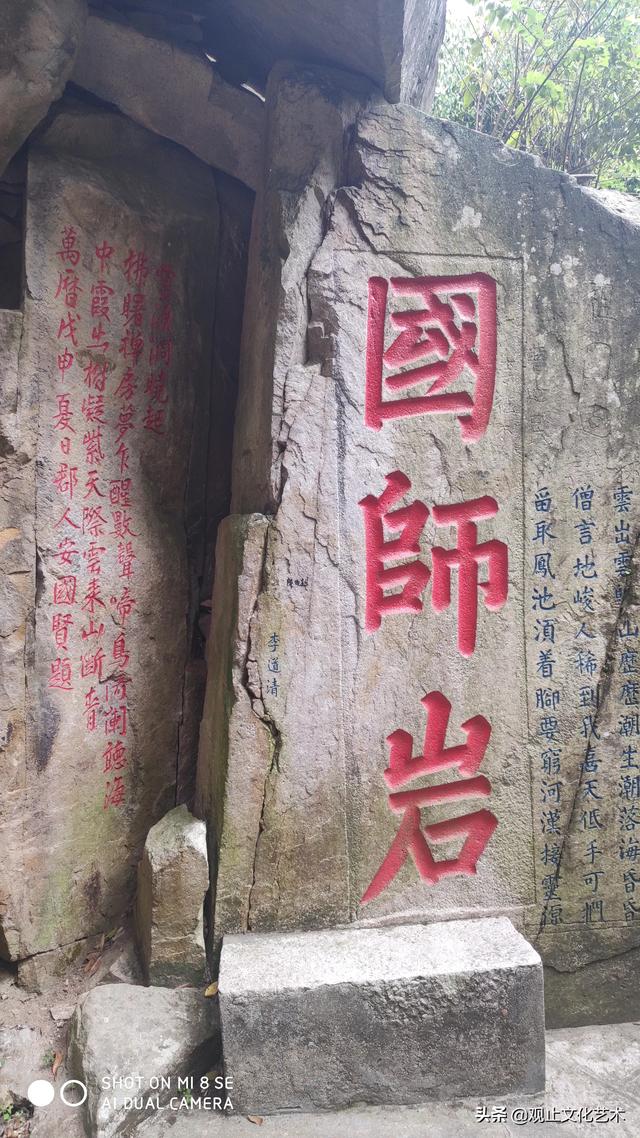 雲出雲歸山歷歷潮生潮落海昏昏
僧言地峻人稀到我喜天低手可捫
畱取鳳池湏着腳要窮河漢接靈源
國師岩
李道清
靈源洞曉起
拂曙禪房夢乍醒數聲啼鳥闌聽海
中霞出樹凝紫天際雲來山斷青
萬曆戊申夏日郡人安國賢題
SHOT ON MI 8 SE
AI DUAL CAMERA
头条 @观止文化艺术